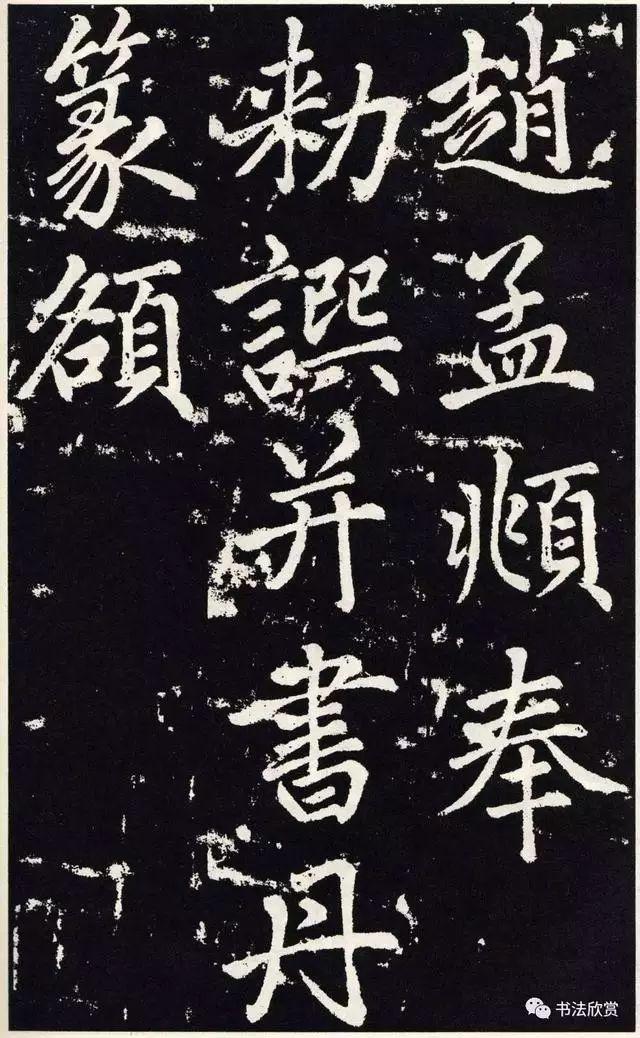 趙孟頫奉
勑譔并書丹
篆額
书法欣赏